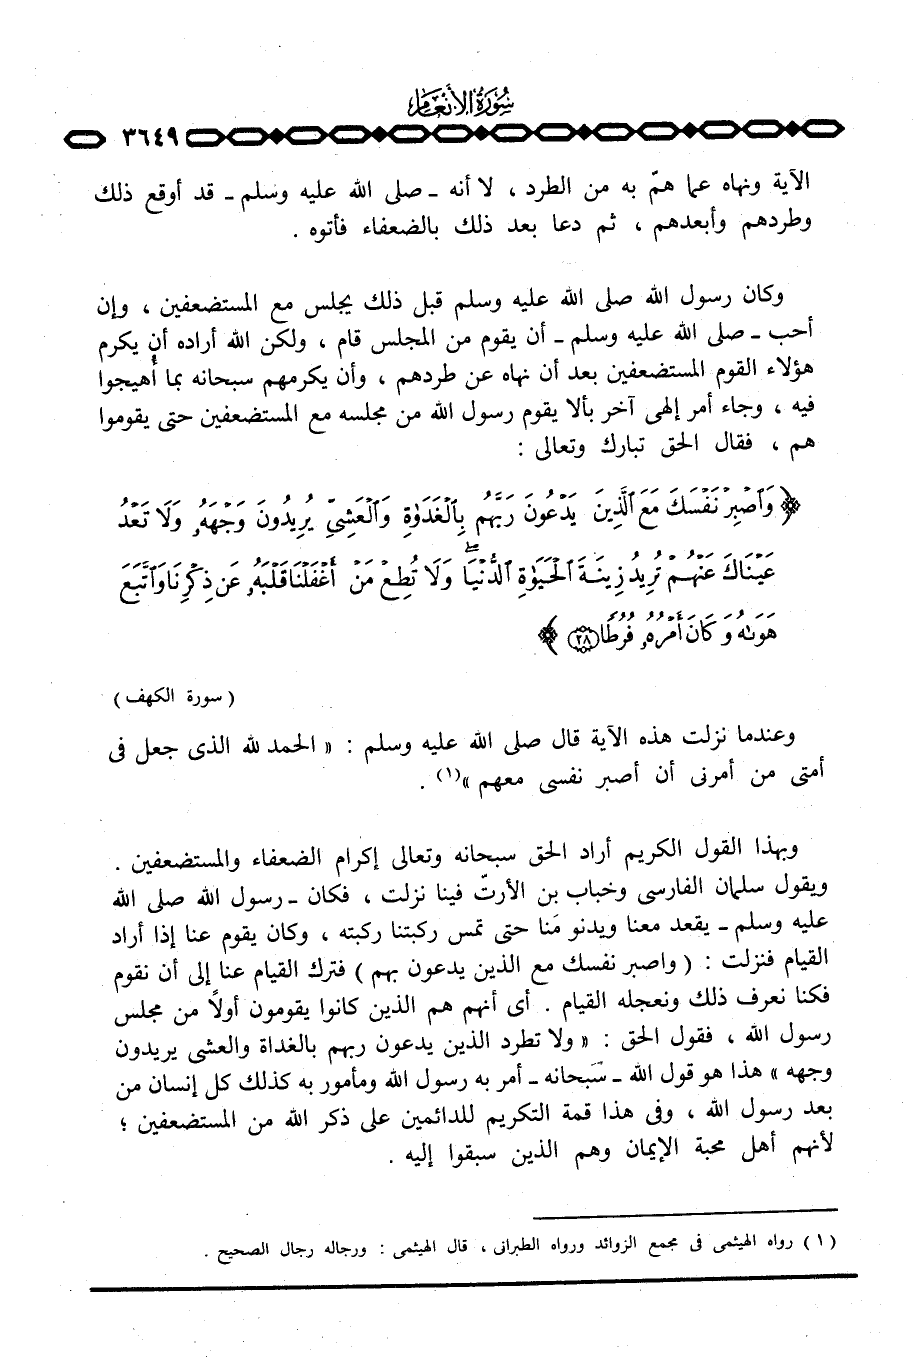 سُورَةُ الأَنْعَامِ
٣٦٤٩
الآية ونهاه عما همّ به من الطرد ، لا أنه ـ صلى الله عليه وسلم ـ قد أوقع ذلك
وطردهم وأبعدهم ، ثم دعا بعد ذلك بالضعفاء فأتوه .
وكان رسول الله صلى الله عليه وسلم قبل ذلك يجلس مع المستضعفين ، وإن
أحب ـ صلى الله عليه وسلم ـ أن يقوم من المجلس قام ، ولكن الله أراده أن يكرم
هؤلاء القوم المستضعفين بعد أن نهاه عن طردهم ، وأن يكرمهم سبحانه بما أُهيجوا
فيه ، وجاء أمر إلهى آخر بألا يقوم رسول الله من مجلسه مع المستضعفين حتى يقوموا
هم ، فقال الحق تبارك وتعالى :
﴿ وَٱصْبِرْ نَفْسَكَ مَعَ ٱلَّذِينَ يَدْعُونَ رَبَّهُم بِٱلْغَدَوٰةِ وَٱلْعَشِىِّ يُرِيدُونَ وَجْهَهُۥ وَلَا تَعْدُ
عَيْنَاكَ عَنْهُمْ تُرِيدُ زِينَةَ ٱلْحَيَوٰةِ ٱلدُّنْيَا ۖ وَلَا تُطِعْ مَنْ أَغْفَلْنَا قَلْبَهُۥ عَن ذِكْرِنَا وَٱتَّبَعَ
هَوَىٰهُ وَكَانَ أَمْرُهُۥ فُرُطًا ٢٨ ﴾
( سورة الكهف )
وعندما نزلت هذه الآية قال صلى الله عليه وسلم : « الحمد لله الذى جعل فى
أمتى من أمرنى أن أصبر نفسى معهم »(١) .
وبهذا القول الكريم أراد الحق سبحانه وتعالى إكرام الضعفاء والمستضعفين .
ويقول سلمان الفارسى وخباب بن الأرتّ فينا نزلت ، فكان ـ رسول الله صلى الله
عليه وسلم ـ يقعد معنا ويدنو مَنا حتى تمس ركبتنا ركبته ، وكان يقوم عنا إذا أراد
القيام فنزلت : ( واصبر نفسك مع الذين يدعون بهم ) فترك القيام عنا إلى أن نقوم
فكنا نعرف ذلك ونعجله القيام . أى أنهم هم الذين كانوا يقومون أولاً من مجلس
رسول الله ، فقول الحق : « ولا تطرد الذين يدعون ربهم بالغداة والعشى يريدون
وجهه » هذا هو قول الله ـ سَبحانه ـ أمر به رسول الله ومأمور به كذلك كل إنسان من
بعد رسول الله ، وفى هذا قمة التكريم للدائمين على ذكر الله من المستضعفين ؛
لأنهم أهل محبة الإيمان وهم الذين سبقوا إليه .
( ١ ) رواه الهيثمى فى مجمع الزوائد ورواه الطبرانى ، قال الهيثمى : ورجاله رجال الصحيح .